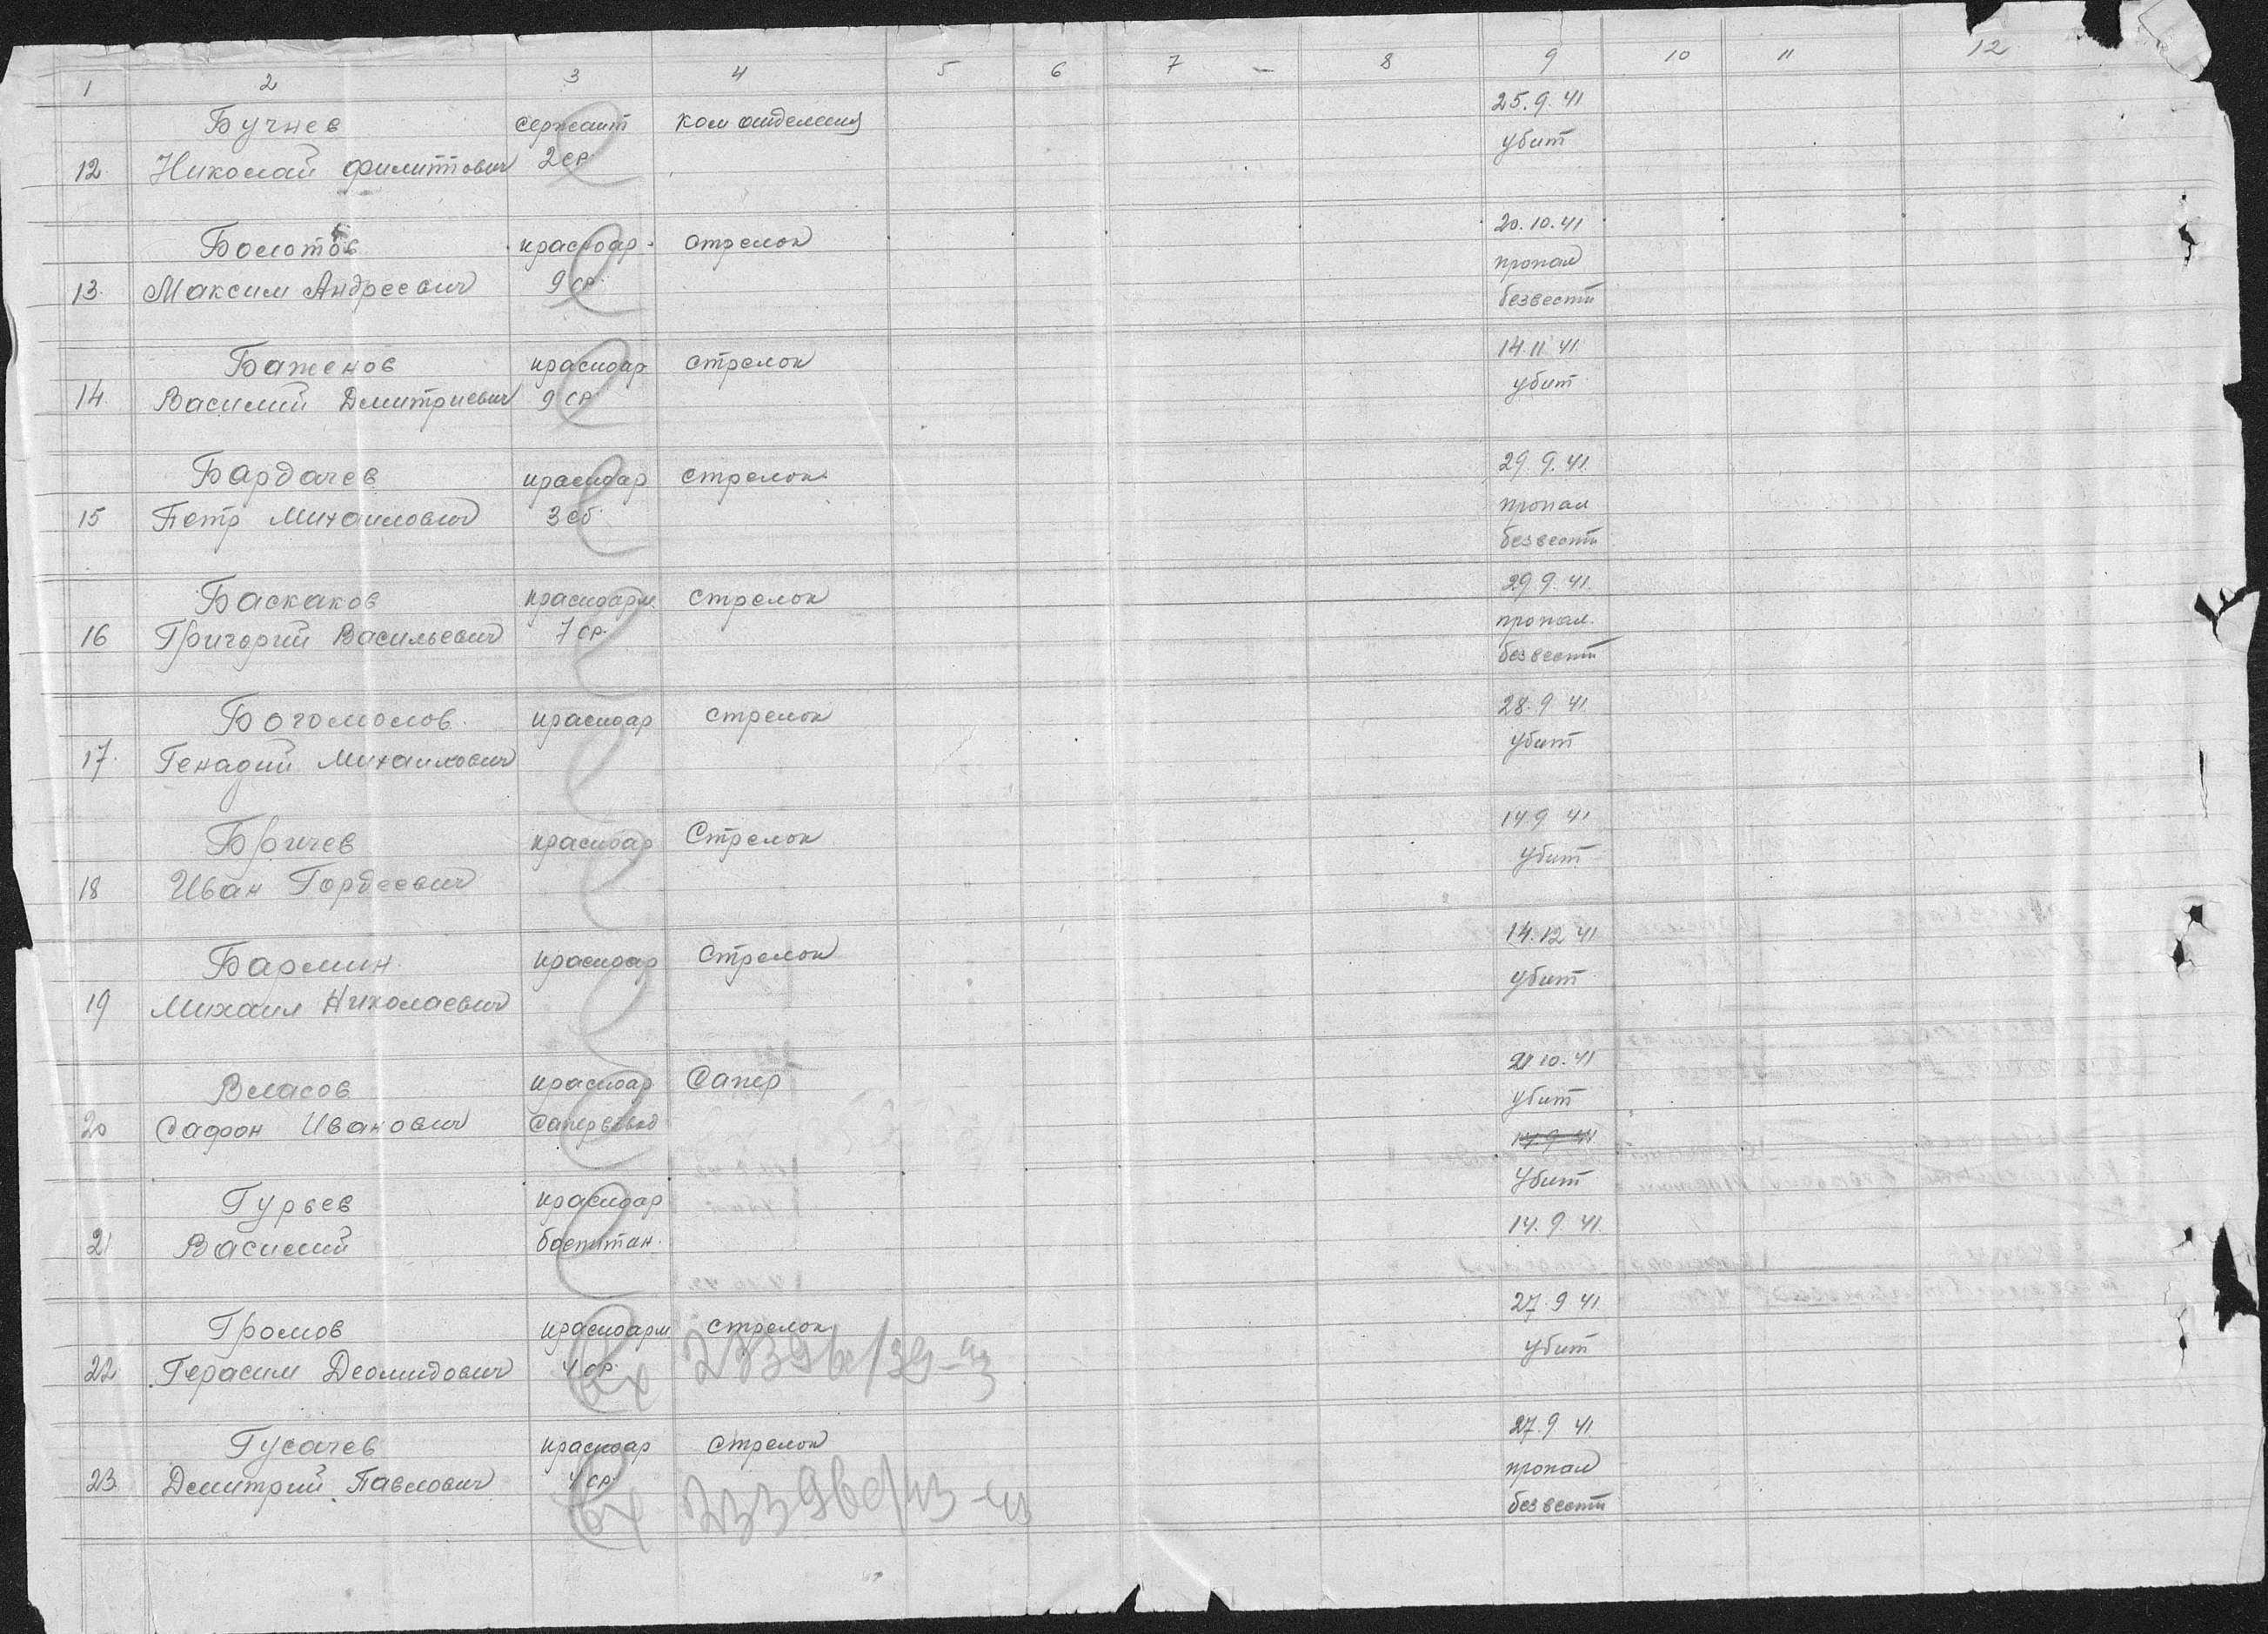 1 2 3 4 5 6 7 – 8 9 10 11 12
Бучнев сержант ком отделения 25.9.41
12 Николай Филиппович 2 ср. убит
Болотов красноар. стрелок 20.10.41
13. Максим Андреевич 9 ср. пропал
безвести
Баженов красноар стрелок 14.11 41
14. Василий Дмитриевич 9 ср. убит
Бардачев красноар стрелок 29.9.41.
15 Петр Михаилович 3 сб. пропал
безвести
Баскаков красноарм. стрелок 29 9.41.
16 Григорий Васильевич 7 ср. пропал.
безвести
Богомолов. красноар стрелок 28.9 41.
17. Генадий Михаилович убит
Бричев красноар Стрелок 14 9 41
18 Иван Гордеевич убит
Бармин. красноар стрелок 14.12 41
19 Михаил Николаевич убит
Власов красноар Сапер 21 10.41
20 Сафон Иванович Саперввод убит
14.9.41
Гурьев красноар убит
21 Василий боепитан. 14.9.41.
Громов красноарм стрелок 27.9 41.
22 Герасим Деомидович 4 ср. убит
Вх
Гусачев красноар стрелок 27.9 41.
23 Дмитрий Павлович 4 ср. пропал
Вх безвести